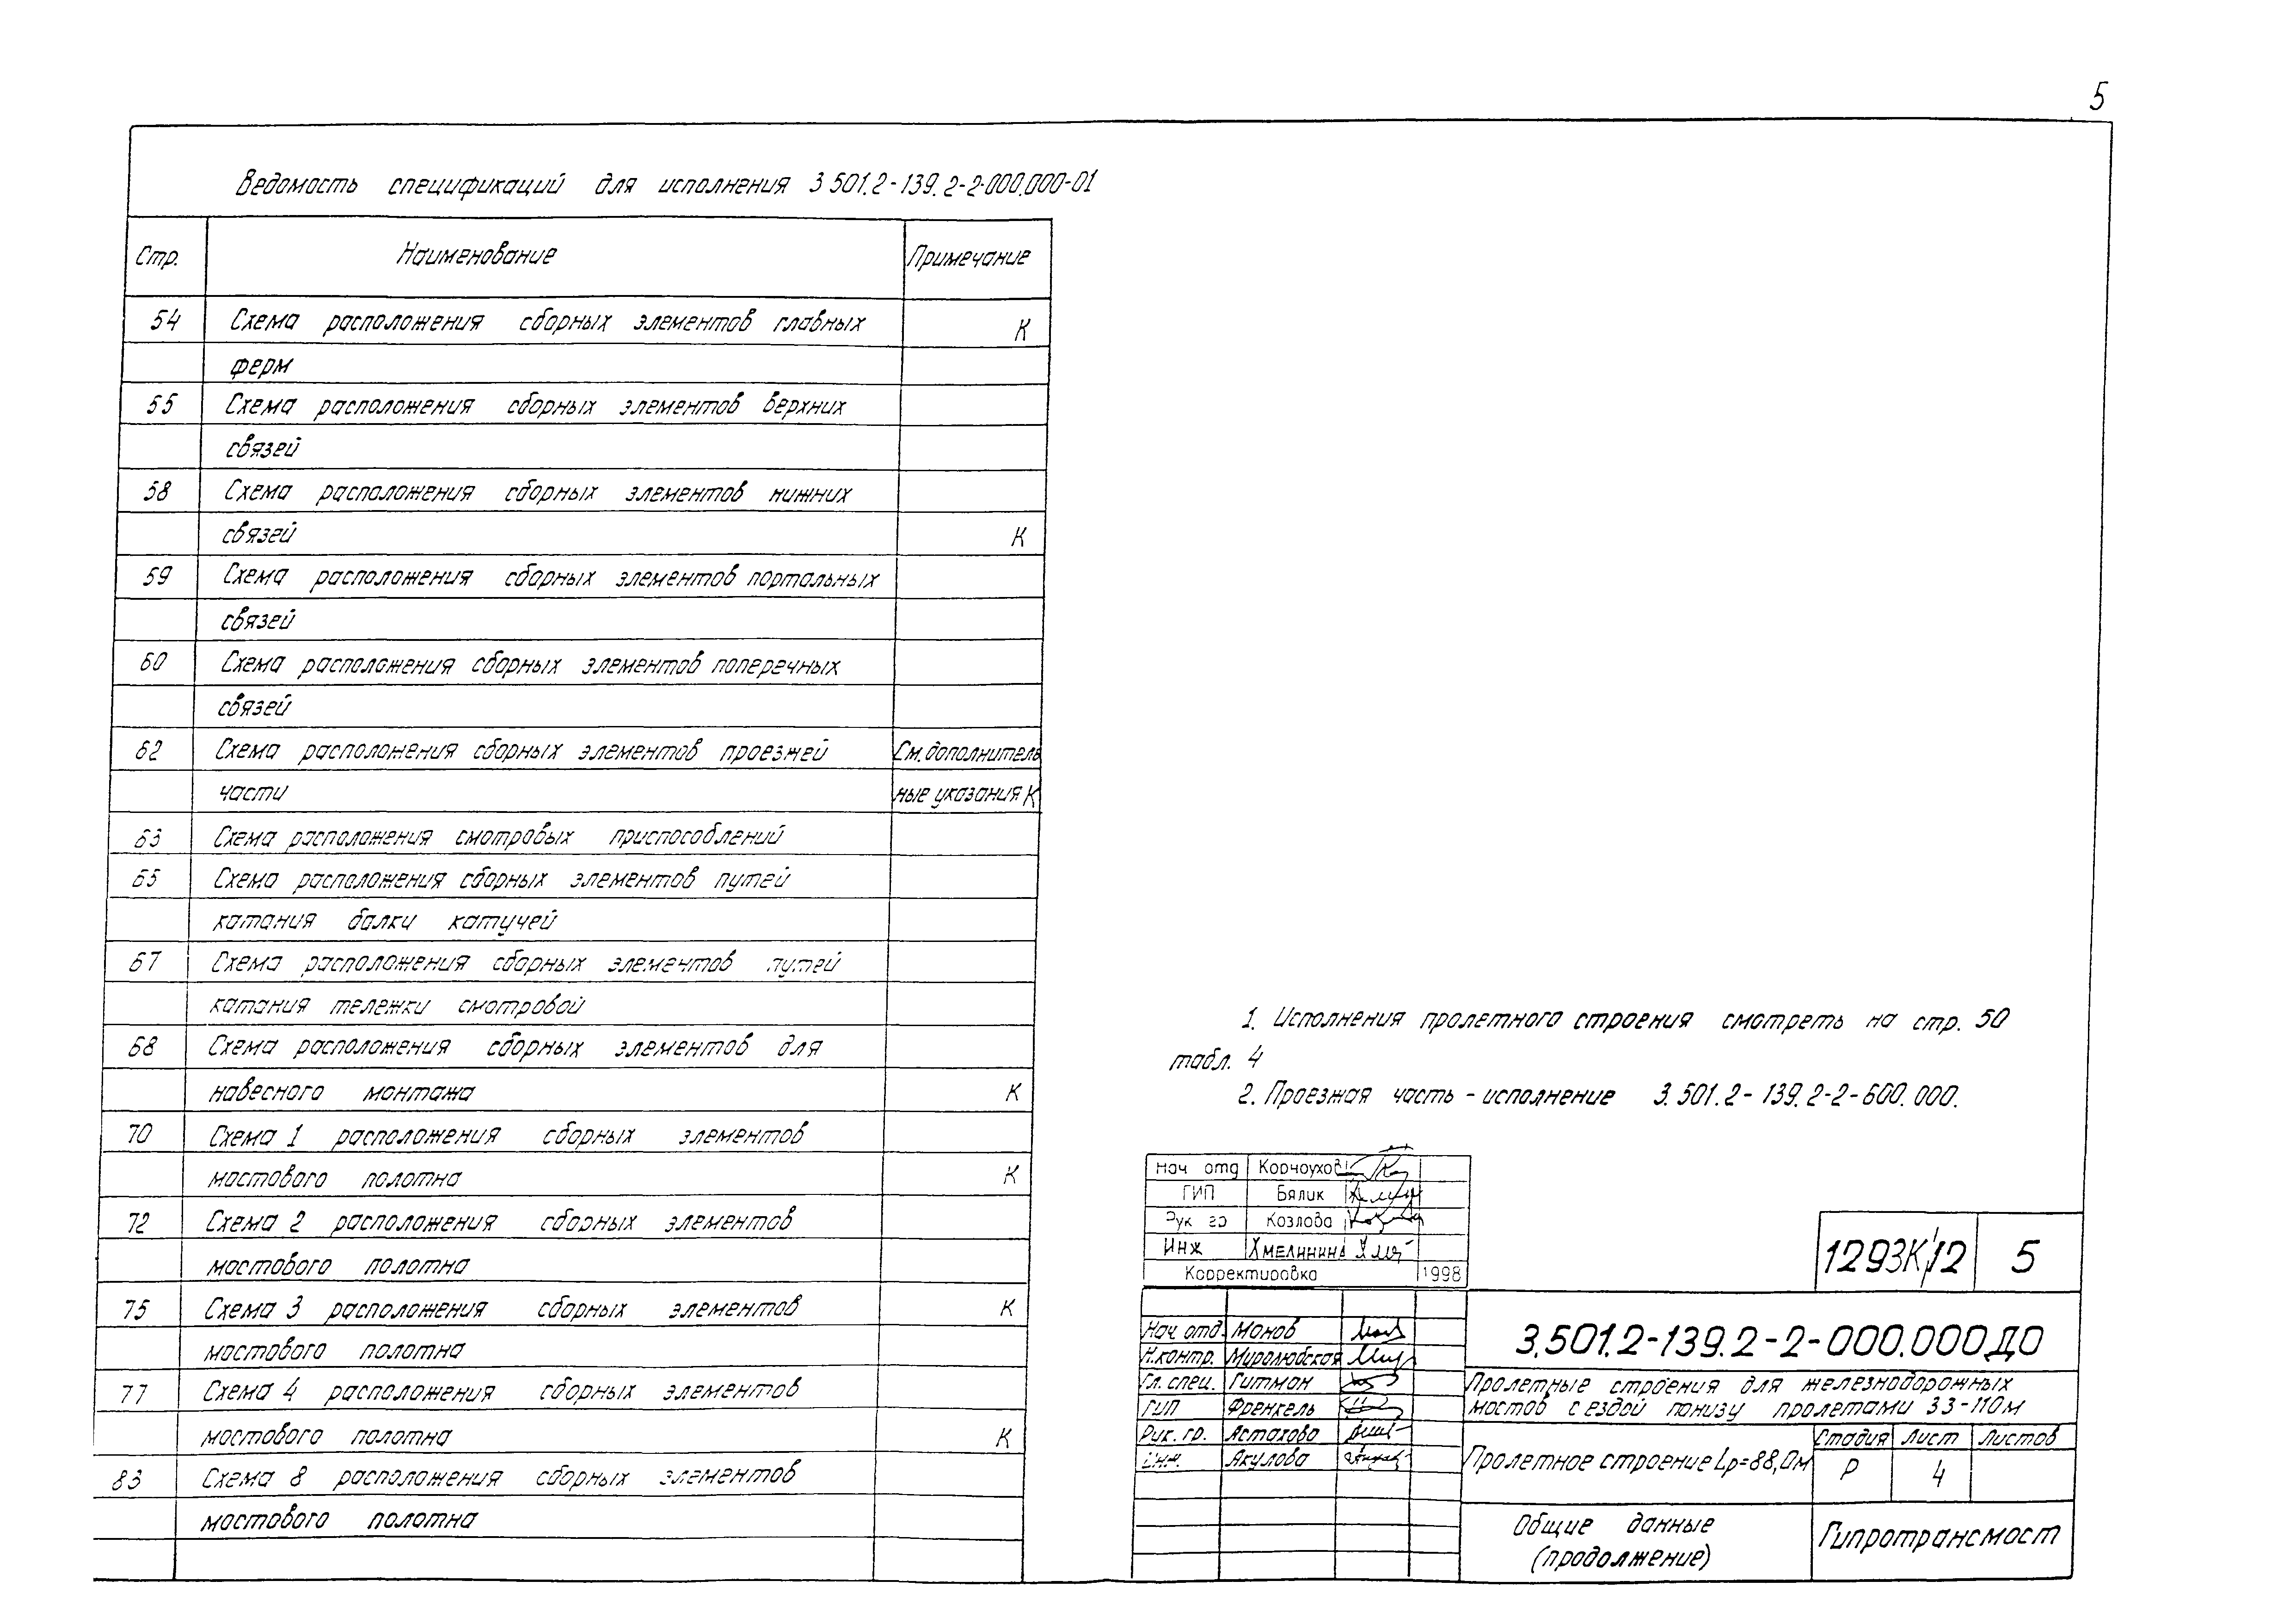 5
Ведомость спецификаций для исполнения 3.501.2-139.2-2-000.000-01
Стр. Наименование Примечание
54 Схема расположения сборных элементов главных К
ферм
55 Схема расположения сборных элементов верхних
связей
58 Схема расположения сборных элементов нижних
связей К
59 Схема расположения сборных элементов портальных
связей
60 Схема расположения сборных элементов поперечных
связей
62 Схема расположения сборных элементов проезжей См. дополнитель
части ные указания К
63 Схема расположения смотровых приспособлений
65 Схема расположения сборных элементов путей
катания балки катучей
67 Схема расположения сборных элементов путей
катания тележки смотровой
68 Схема расположения сборных элементов для
навесного монтажа К
70 Схема 1 расположения сборных элементов
мостового полотна К
72 Схема 2 расположения сборных элементов
мостового полотна
75 Схема 3 расположения сборных элементов К
мостового полотна
77 Схема 4 расположения сборных элементов
мостового полотна К
83 Схема 8 расположения сборных элементов
мостового полотна
1. Исполнения пролетного строения смотреть на стр. 50
табл. 4
2. Проезжая часть - исполнение 3.501.2-139.2-2-600.000.
Нач отд Корноухов
ГИП Бялик
Рук гр Козлова
Инж Хмелинина
Корректировка 1998
1293К/12 5
Нач отд. Монов
Н.контр. Миролюбская
Гл. спец. Гитман
ГИП Френкель
Рук. гр. Астахова
Инж. Акулова
3.501.2-139.2-2-000.000ДО
Пролетные строения для железнодорожных
мостов с ездой понизу пролетами 33-110м
Пролетное строение Lp=88,0м
Стадия Лист Листов
Р 4
Общие данные
(продолжение)
Гипротрансмост